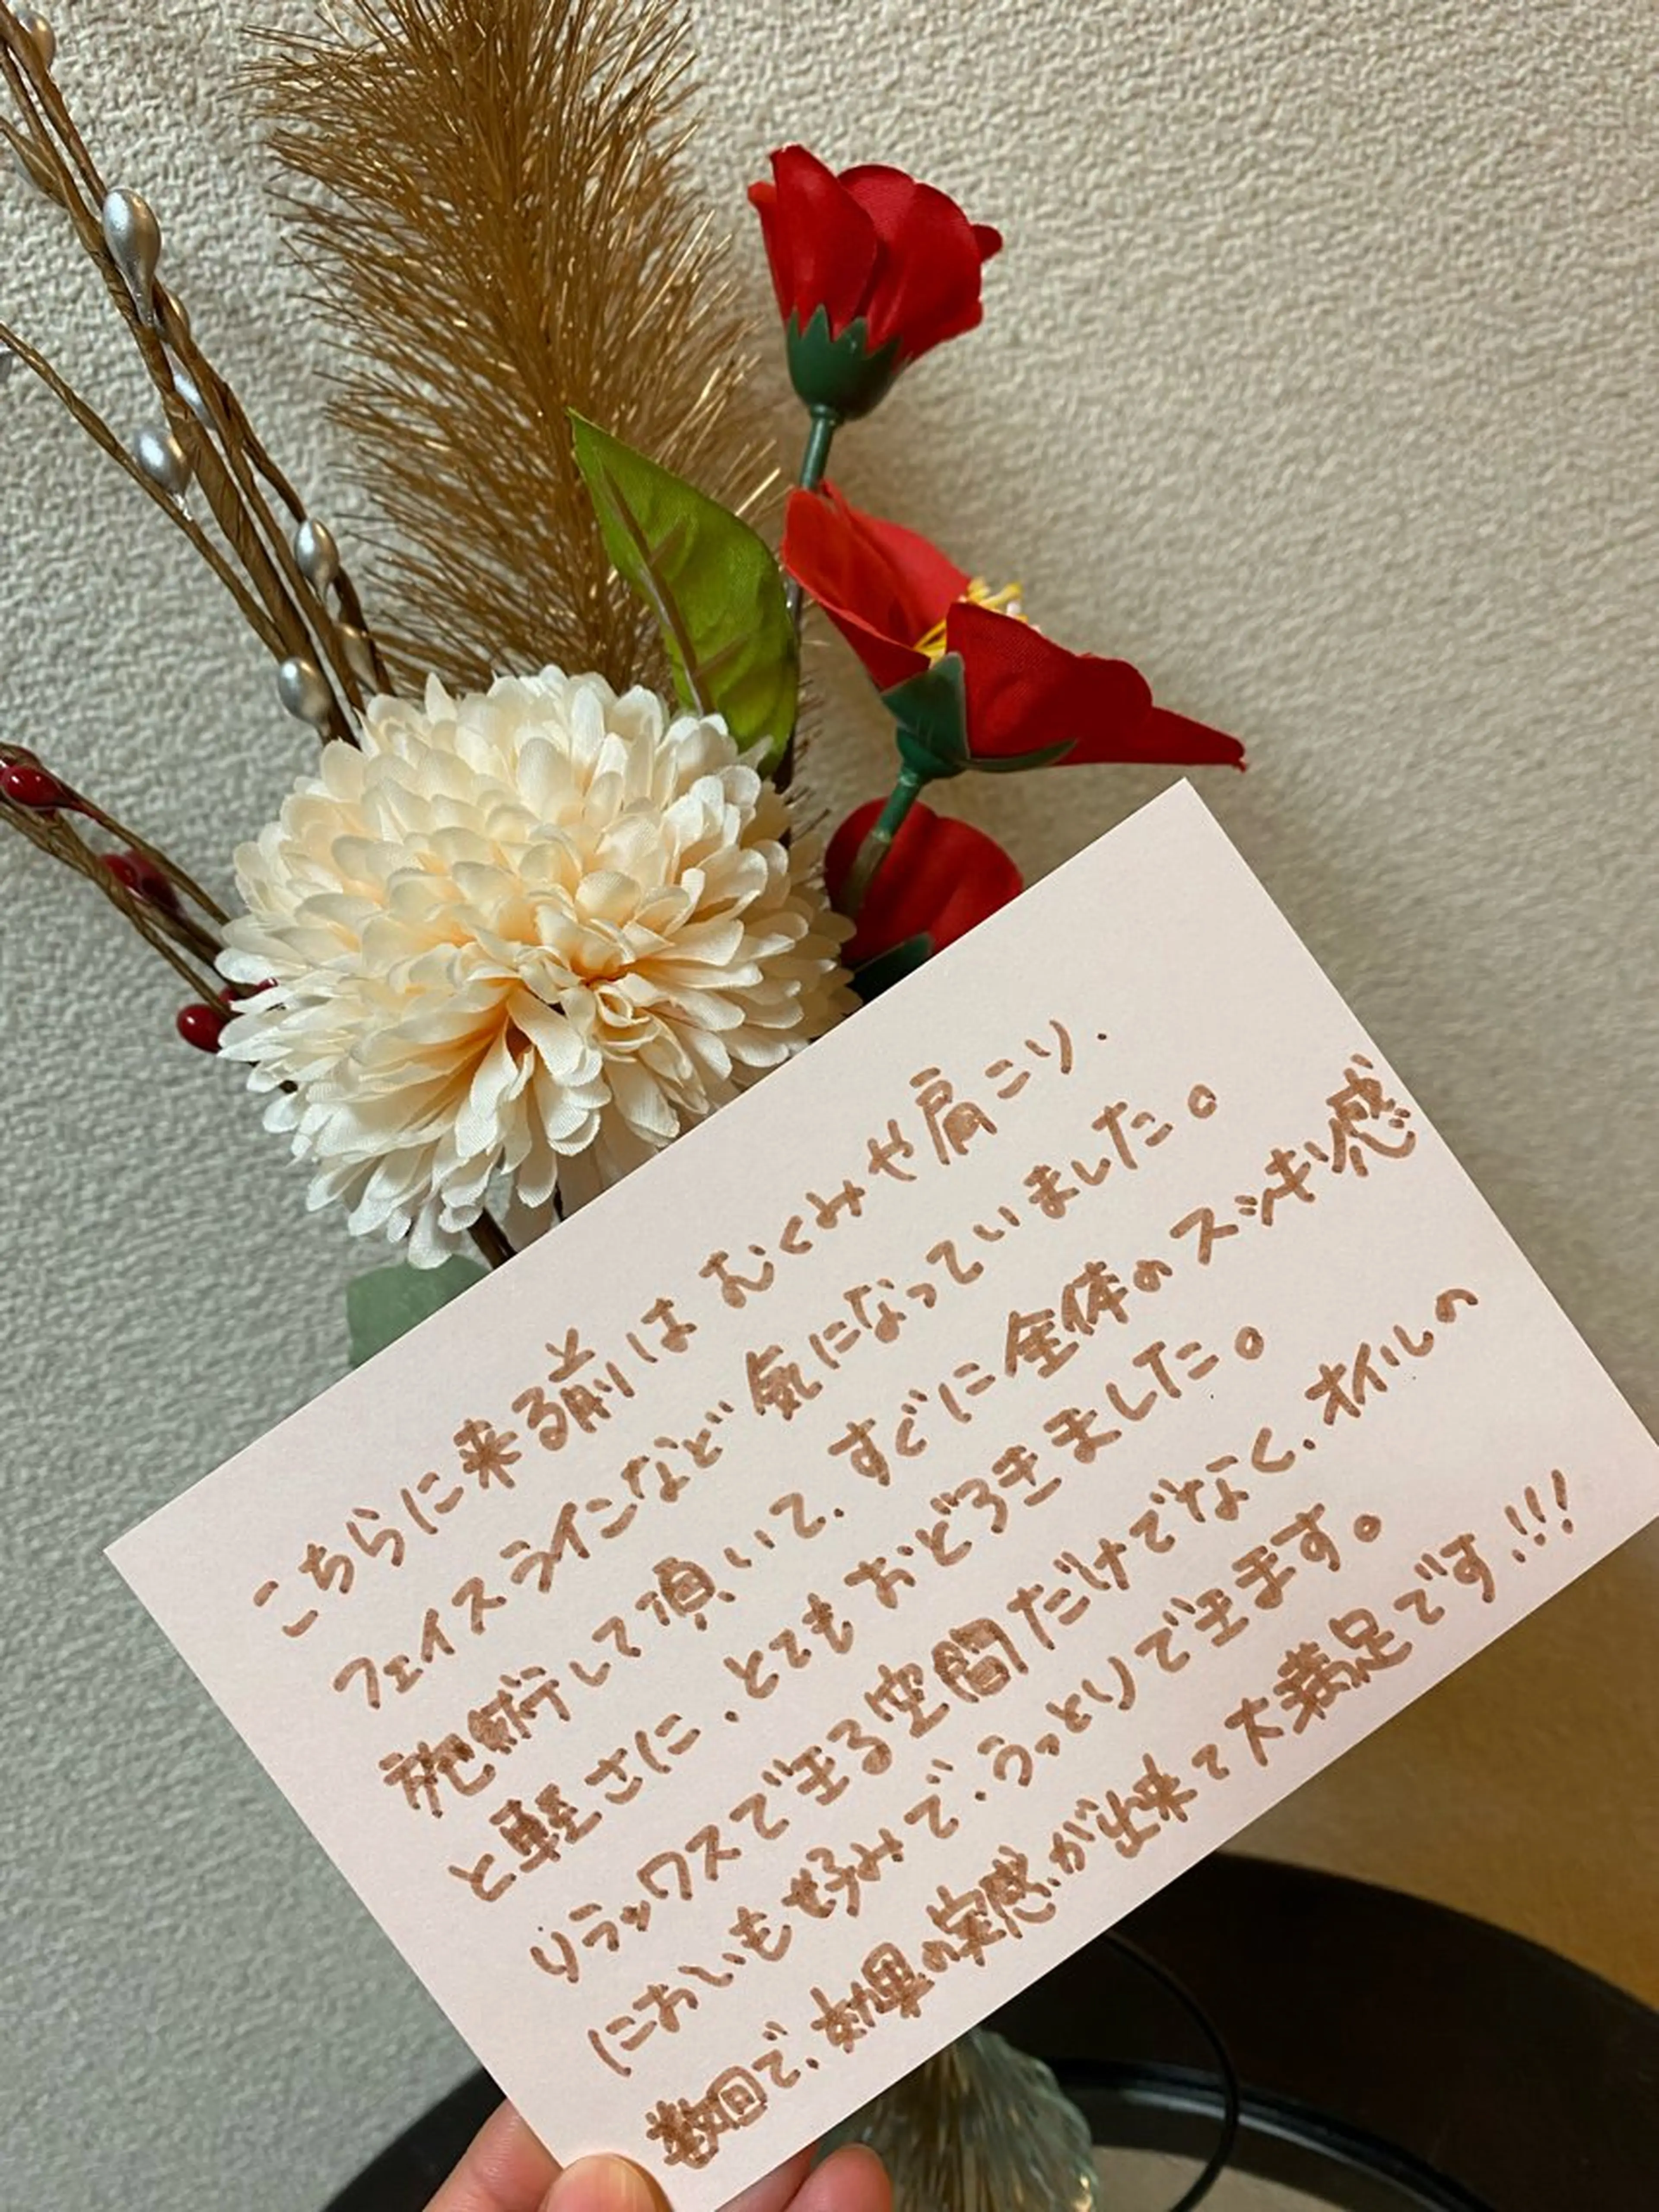 こちらに来る前は むくみや肩こり、
フェイスラインなど気になっていました。
施術して頂いて、すぐに全体のスッキリ感
と軽さに、とてもおどろきました。
リラックスできる空間だけでなく、オイルの
においも好みで、うっとりできます。
数回で、効果の実感が出来て大満足です!!!